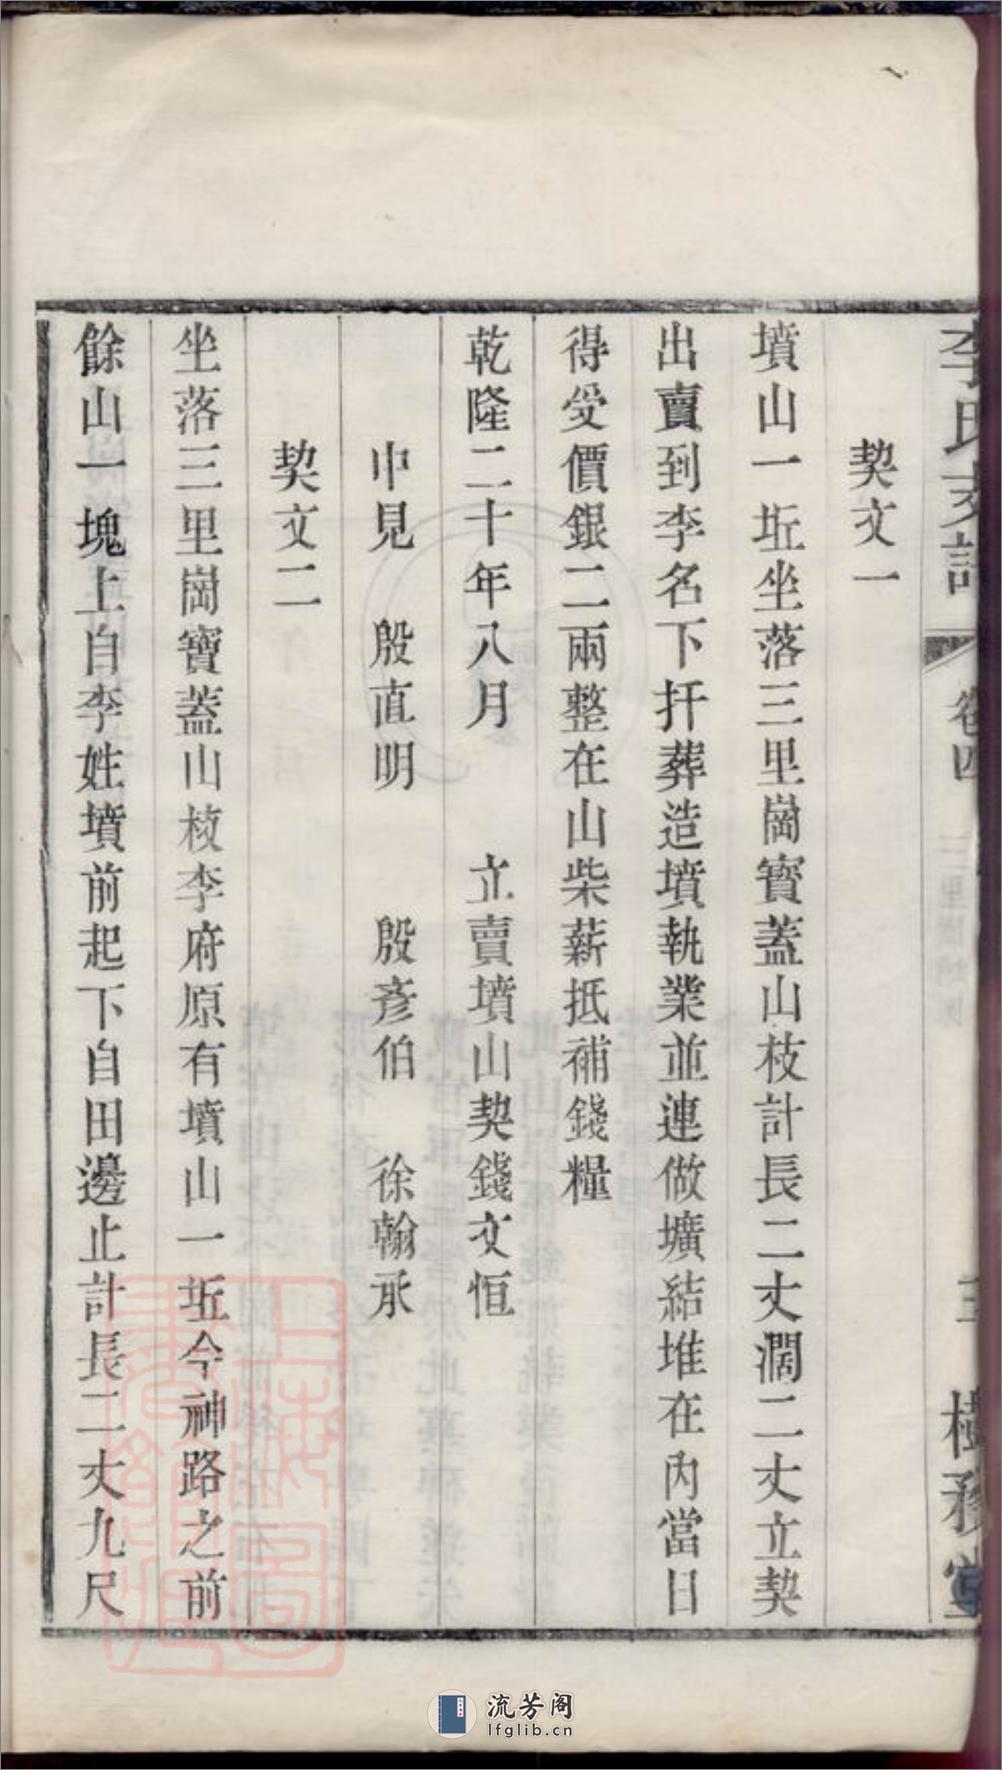 李氏支譜
卷四
三
樹務堂
契文一
墳山一坵坐落三里崗寶蓋山枝計長二丈濶二丈立契
出賣到李名下扦葬造墳執業並連做壙結堆在內當日
得受價銀二兩整在山柴薪抵補錢糧
乾隆二十年八月 立賣墳山契錢文恒
中見 殷直明 殷彥伯 徐翰承
契文二
坐落三里崗寶蓋山枝李府原有墳山一坵今神路之前
餘山一塊上自李姓墳前起下自田邊止計長二丈九尺
流芳阁
lfglib.cn